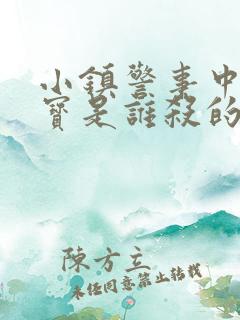 小鎮警事中
寶是誰殺的
陳方立
未經同意禁止轉載